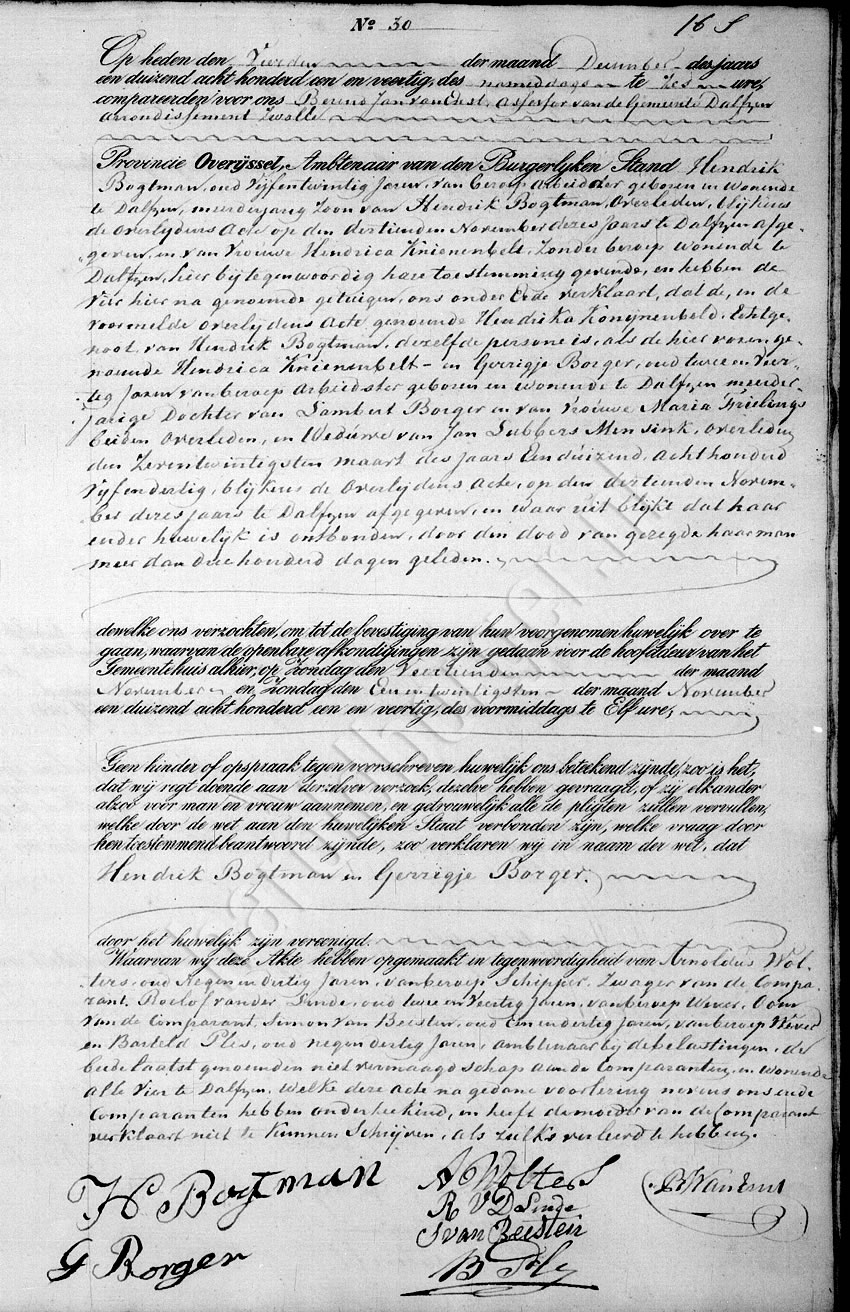 No 30
Op heden den Vierden der maand December des jaars
een duizend acht honderd een en veertig, des namiddags te Zes ure,
compareerden voor ons Berend Jan van Elst, Assessor van de Gemeente Dalfzen
arrondissement Zwolle
Provincie Overijssel, Ambtenaar van den Burgerlyken Stand Hendrik
Bogtman, oud Vijfentwintig Jaren, van beroep Arbeider geboren en wonende
te Dalfzen, meerderjarig Zoon van Hendrik Bogtman, Overleden, blijkens
de Overlijdens Acte op den dertienden November dezes Jaars te Dalfzen afge-
geven, en van Vrouwe Hendrica Knienenbelt, Zonder beroep wonende te
Dalfzen, hier bij tegenwoordig hare toestemming gevende, en hebben de
Vier hier na genoemde getuigen, ons onder Eede verklaart, dat de, in de
voormelde Overlijdens Acte genoemde Hendrika Konijnenbeld, Echtge-
noot van Hendrik Bogtman, dezelfde persone is, als de hier voren ge-
noemde Hendrica Knienenbelt – en Gerrigje Borger, oud twee en Veer-
tig Jaren van beroep Arbiedster geboren en wonende te Dalfzen meerder-
jarige Dochter van Lambert Borger en van Vrouwe Maria Frielings
beiden Overleden, en Weduwe van Jan Lubbers Mensink, Overleden
den Zevenentwintigsten maart des Jaars Eenduizend, Achthonderd
Vijfendertig, blijkens de Overlijdens Acte, op den dertienden Novem-
ber dezes jaars te Dalfzen afgegeven, en waar uit blijkt dat haar
eerder huwelijk is ontbonden, door den dood van gezegde haar man
meer dan driehonderd dagen geleden.
dewelke ons verzochten, om tot de bevestiging van hun voorgenomen huwelijk over te
gaan, waarvan de openbare afkondigingen zijn gedaan voor de hoofddeur van het
Gemeentehuis alhier, op Zondag den Veertienden der maand
November en Zondag den Eenentwintigsten der maand November
een duizend acht honderd een en veertig, des voormiddags te Elf ure,
Geen hinder of opspraak tegen voorschreven huwelijk ons beteekend zijnde, zoo is het,
dat wij regt doende aan derzelver verzoek, dezelve hebben gevraagd, of zij elkander
alzoo voor man en vrouw aannemen, en getrouwelijk alle de pligten zullen vervullen,
welke door de wet aan den huwelijken Staat verbonden zijn, welke vraag door
hen toestemmend beantwoord zijnde, zoo verklaren wij in naam der wet, dat
Hendrik Bogtman en Gerrigje Borger.
door het huwelijk zijn vereenigd.
Waarvan wij deze Akte hebben opgemaakt in tegenwoordigheid van Arnoldus Wol-
ters, oud Negen en dertig Jaren, van beroep Schipper, Zwager van de Compa-
rant, Roelof van der Sinde, oud twee en Veertig Jaren, van beroep Wever, Oom
van de Comparant, Simon van Beesten, oud Een en dertig Jaren, van beroep Wever
en Barteld Ples, oud negen dertig Jaren, ambtenaar bij de belastingen, de
beide laatst genoemden niet vermaagdschap aan de Comparanten, en wonende
alle Vier te Dalfzen, welke deze acte na gedane voorlezing nevens ons en de
Comparanten hebben onderteekend, en heeft de moeder van de Comparant
verklaart niet te kunnen Schrijven, als zulks verleerd te hebben.
H Bogtman
G Borger
A Wolters
R V D Sinde
S van Beesten